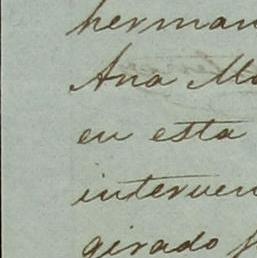 herman
Ana Ma
en esta
interven
girado f